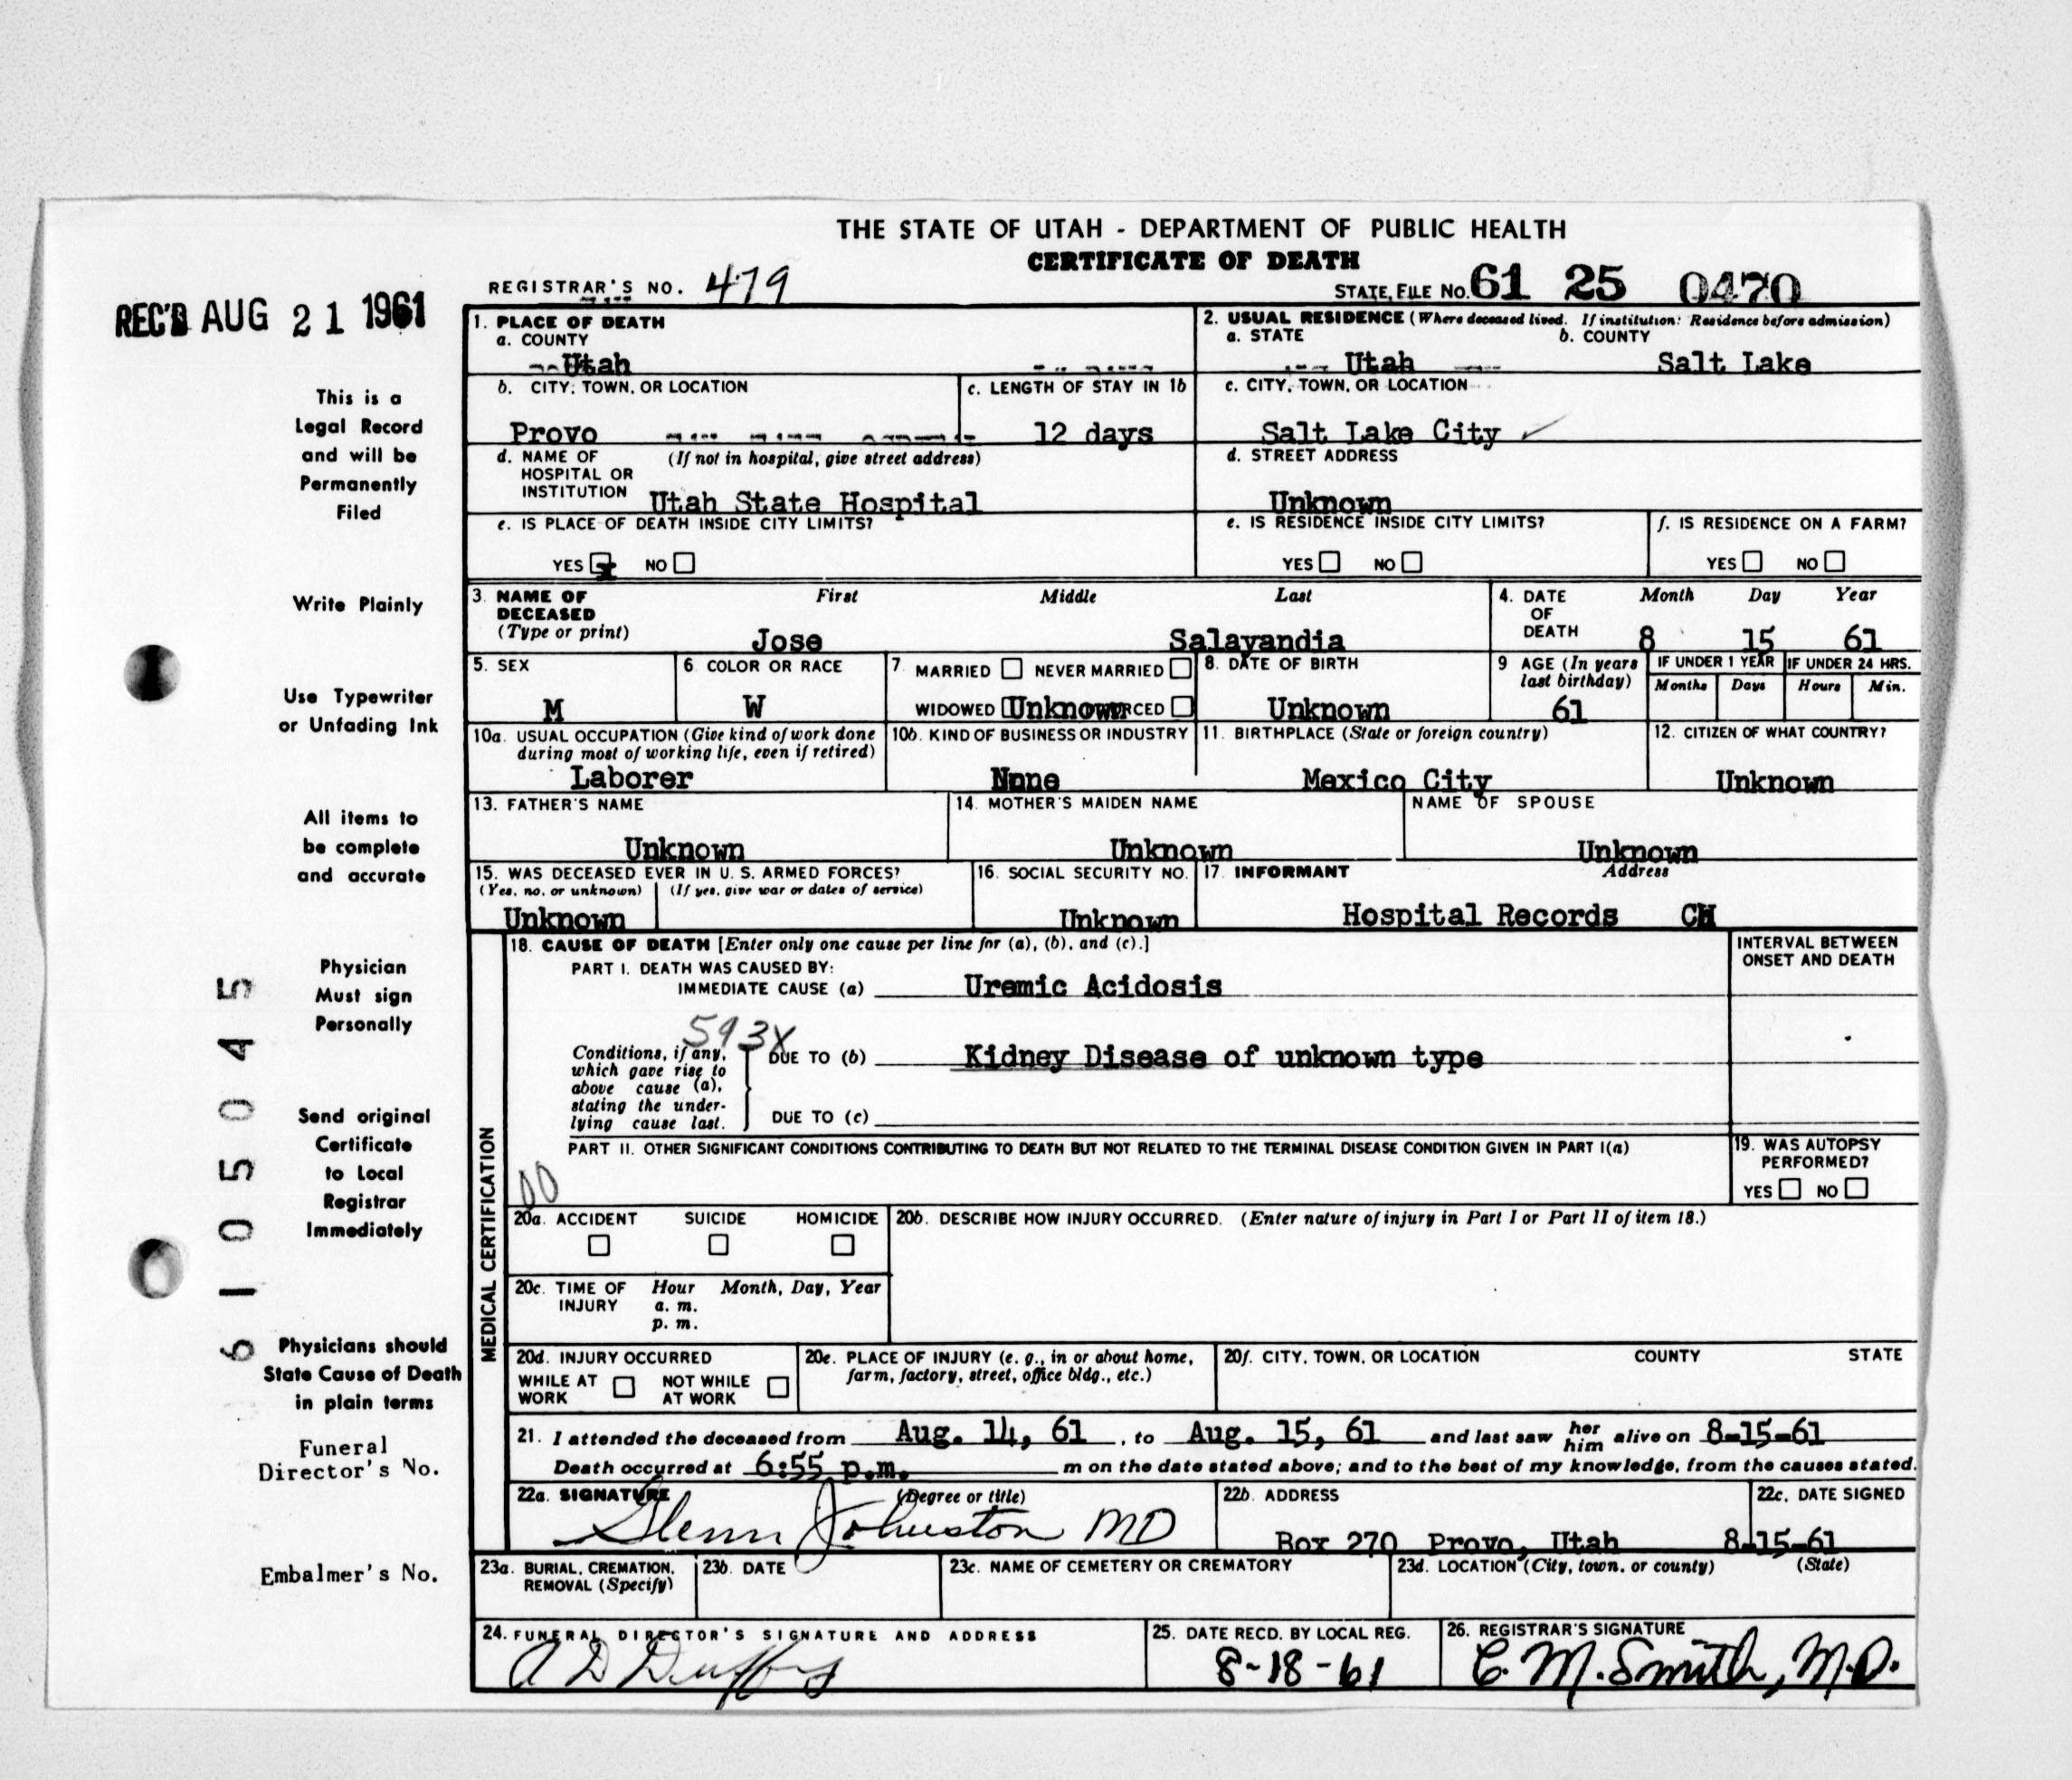 THE STATE OF UTAH - DEPARTMENT OF PUBLIC HEALTH
CERTIFICATE OF DEATH
REGISTRAR'S NO. 479
STATE FILE NO. 61 25 0470
REC'D AUG 21 1961
This is a
Legal Record
and will be
Permanently
Filed
Write Plainly
Use Typewriter
or Unfading Ink
All items to
be complete
and accurate
Physician
Must sign
Personally
Send original
Certificate
to Local
Registrar
Immediately
Physicians should
State Cause of Death
in plain terms
Funeral
Director's No.
Embalmer's No.
6105045
1. PLACE OF DEATH
a. COUNTY
Utah
2. USUAL RESIDENCE (Where deceased lived. If institution: Residence before admission)
a. STATE b. COUNTY
Utah Salt Lake
b. CITY, TOWN, OR LOCATION
Provo
c. LENGTH OF STAY IN 1b
12 days
c. CITY, TOWN, OR LOCATION
Salt Lake City
d. NAME OF (If not in hospital, give street address)
HOSPITAL OR
INSTITUTION Utah State Hospital
d. STREET ADDRESS
Unknown
e. IS PLACE OF DEATH INSIDE CITY LIMITS?
YES x NO
e. IS RESIDENCE INSIDE CITY LIMITS?
YES NO
f. IS RESIDENCE ON A FARM?
YES NO
3. NAME OF First Middle Last
DECEASED
(Type or print) Jose Salayandia
4. DATE Month Day Year
OF
DEATH 8 15 61
5. SEX
M
6. COLOR OR RACE
W
7. MARRIED NEVER MARRIED
WIDOWED Unknown RCED
8. DATE OF BIRTH
Unknown
9 AGE (In years
last birthday)
61
IF UNDER 1 YEAR IF UNDER 24 HRS.
Months Days Hours Min.
10a. USUAL OCCUPATION (Give kind of work done
during most of working life, even if retired)
Laborer
10b. KIND OF BUSINESS OR INDUSTRY
None
11. BIRTHPLACE (State or foreign country)
Mexico City
12. CITIZEN OF WHAT COUNTRY?
Unknown
13. FATHER'S NAME
Unknown
14. MOTHER'S MAIDEN NAME
Unknown
NAME OF SPOUSE
Unknown
15. WAS DECEASED EVER IN U. S. ARMED FORCES?
(Yes, no, or unknown) (If yes, give war or dates of service)
Unknown
16. SOCIAL SECURITY NO.
Unknown
17. INFORMANT Address
Hospital Records CH
MEDICAL CERTIFICATION
18. CAUSE OF DEATH [Enter only one cause per line for (a), (b), and (c).]
PART I. DEATH WAS CAUSED BY:
IMMEDIATE CAUSE (a) Uremic Acidosis
INTERVAL BETWEEN
ONSET AND DEATH
593X
Conditions, if any,
which gave rise to
above cause (a),
stating the under-
lying cause last.
DUE TO (b) Kidney Disease of unknown type
DUE TO (c)
PART II. OTHER SIGNIFICANT CONDITIONS CONTRIBUTING TO DEATH BUT NOT RELATED TO THE TERMINAL DISEASE CONDITION GIVEN IN PART I(a)
00
19. WAS AUTOPSY
PERFORMED?
YES NO
20a. ACCIDENT SUICIDE HOMICIDE
20b. DESCRIBE HOW INJURY OCCURRED. (Enter nature of injury in Part I or Part II of item 18.)
20c. TIME OF Hour Month, Day, Year
INJURY a. m.
p. m.
20d. INJURY OCCURRED
WHILE AT NOT WHILE
WORK AT WORK
20e. PLACE OF INJURY (e. g., in or about home,
farm, factory, street, office bldg., etc.)
20f. CITY, TOWN, OR LOCATION COUNTY STATE
21. I attended the deceased from Aug. 14, 61, to Aug. 15, 61 and last saw her him alive on 8-15-61
Death occurred at 6:55 p.m. m on the date stated above; and to the best of my knowledge, from the causes stated.
22a. SIGNATURE (Degree or title)
Glenn Johnston MD
22b. ADDRESS
Box 270 Provo, Utah
22c. DATE SIGNED
8-15-61
23a. BURIAL, CREMATION,
REMOVAL (Specify)
23b. DATE
23c. NAME OF CEMETERY OR CREMATORY
23d. LOCATION (City, town, or county) (State)
24. FUNERAL DIRECTOR'S SIGNATURE AND ADDRESS
A D
25. DATE RECD. BY LOCAL REG.
8-18-61
26. REGISTRAR'S SIGNATURE
C. M. Smith, M.D.